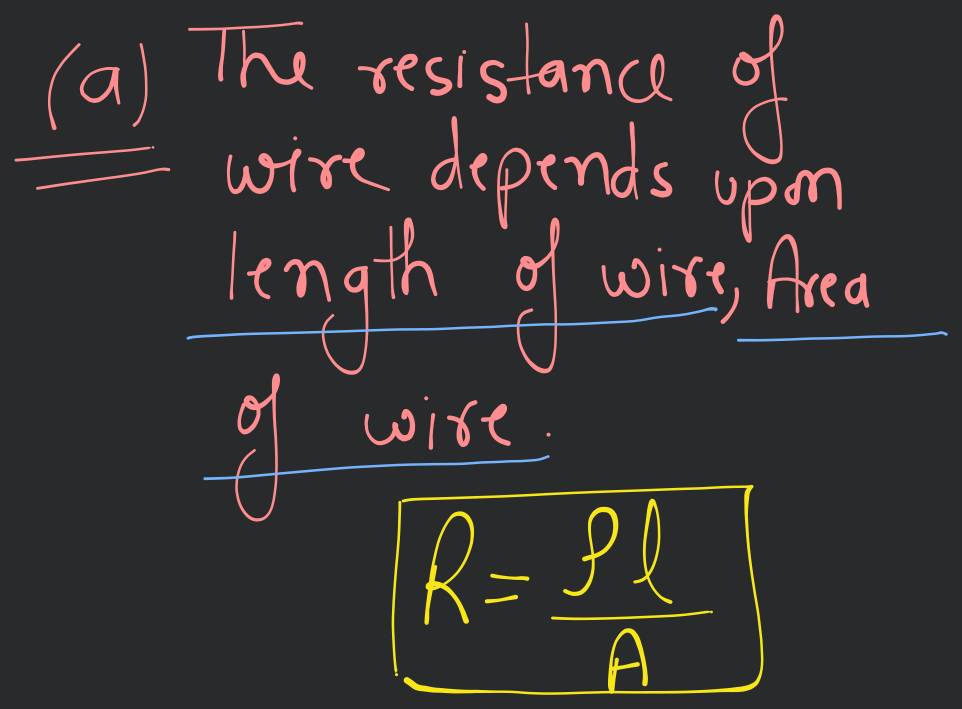 (a) The resistance of
wire depends upon
length of wire, Area
of wire.
R = ρl/A